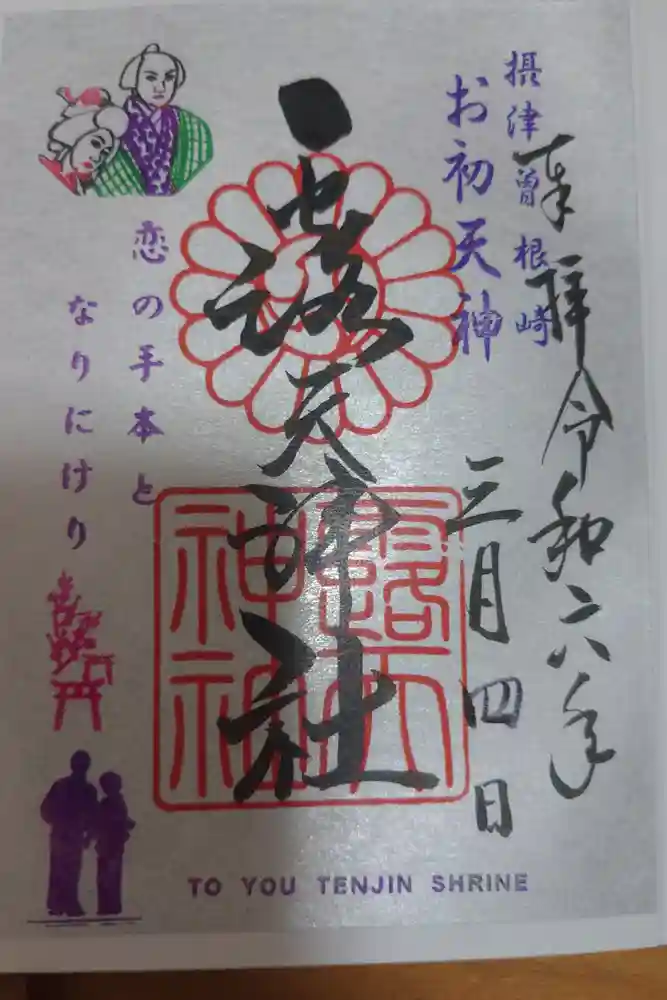 奉拝 令和六年
三月四日
摂津 曽根崎
お初天神
露天神社
露天
神社
恋の手本と
なりにけり
TO YOU TENJIN SHRINE